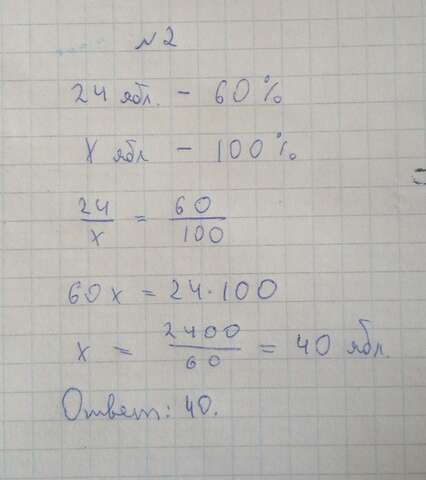 №2
24 ябл. - 60%
x ябл - 100%
24/x = 60/100
60x = 24·100
x = 2400/60 = 40 ябл.
Ответ: 40.